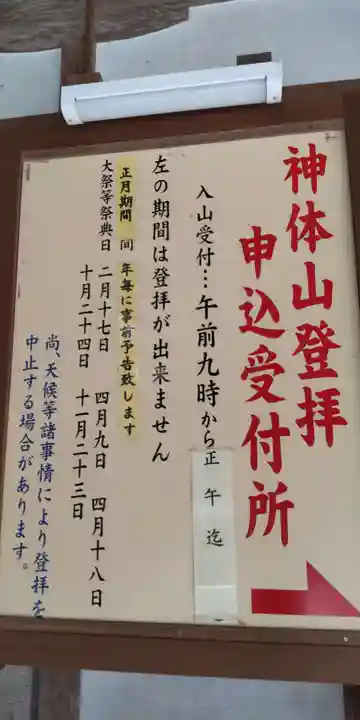 神体山登拝
申込受付所
入山受付…午前九時から正午迄
左の期間は登拝が出来ません
正月期間 同 年毎に事前予告致します
大祭等祭典日 二月十七日 四月九日 四月十八日
十月二十四日 十一月二十三日
尚、天候等諸事情により登拝を
中止する場合があります。